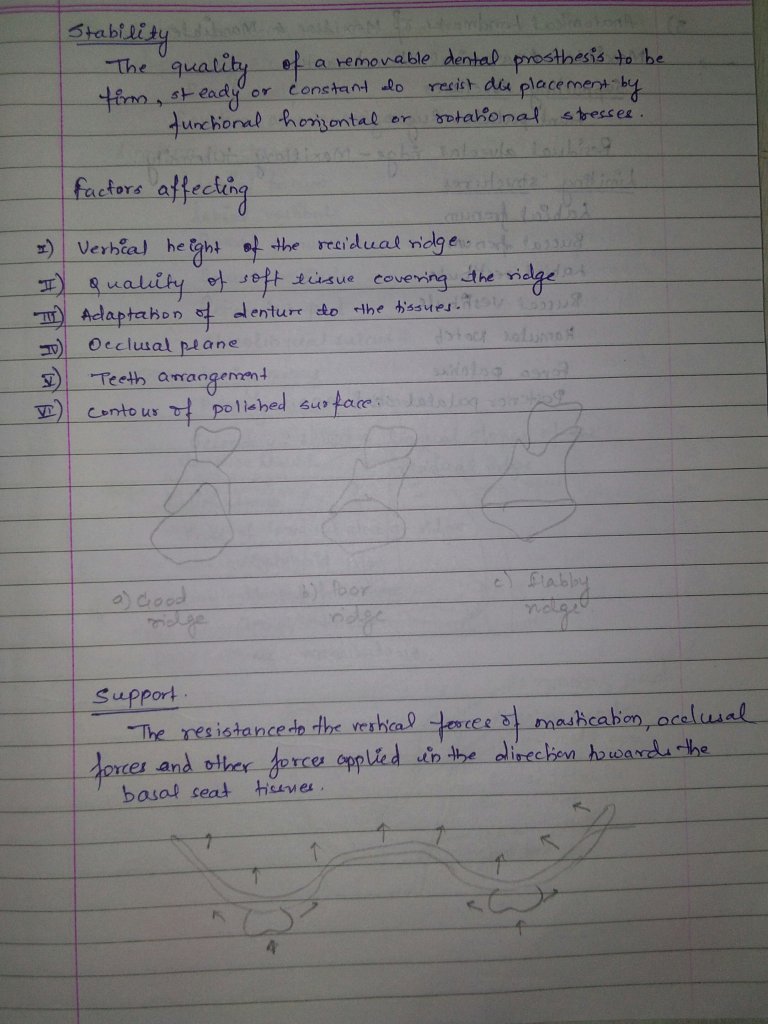 Stability
The quality of a removable dental prosthesis to be
firm, steady or constant to resist displacement by
functional horizontal or rotational stresses.
Factors affecting
I) Vertical height of the residual ridge.
II) Quality of soft tissue covering the ridge
III) Adaptation of denture to the tissues.
IV) Occlusal plane
V) Teeth arrangement
VI) Contour of polished surface.
a) Good ridge
b) Poor ridge
c) Flabby ridge
Support.
The resistance to the vertical forces of mastication, occlusal
forces and other forces applied in the direction towards the
basal seat tissues.